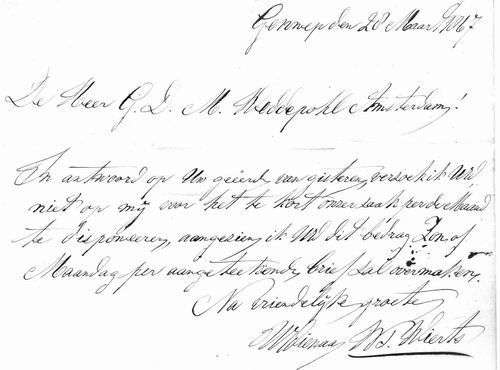 Gennep den 28 Maart 1867
De Heer G. D. M. Weddepohl Amsterdam!
In antwoord op Uw geëerd van gisteren, verzoek ik UEd
niet op mij voor het te kort onzer zaak per de Maand
te disponeeren, aangezien ik UEd dit bedrag Zon of
Maandag per aangeteekende brief zal overmaken.
Na vriendelijke groete
UEDienaar W. Wierts